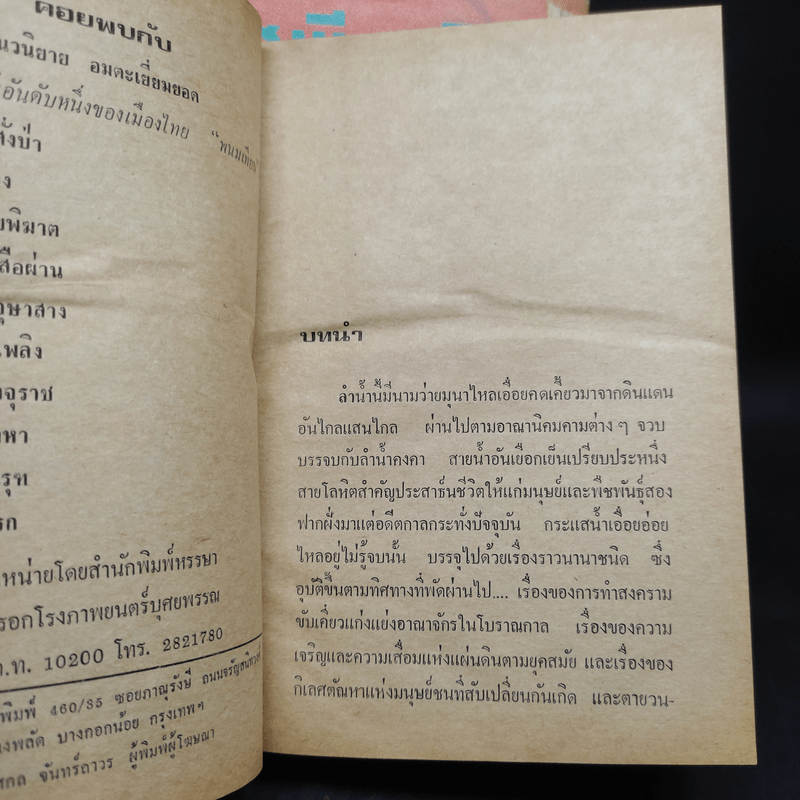 คอยพบกับ
นวนิยาย อมตะเยี่ยมยอด
อันดับหนึ่งของเมืองไทย "พนมเทียน
สังป่า
ง
พิฆาต
สือผ่าน
อุษาสาง
เพลิง
จุราช
หา
รุฑ
รก
หน่ายโดยสำนักพิมพ์หรรษา
รอกโรงภาพยนตร์บุศยพรรณ
ก.ท. 10200 โทร. 2821780
พิมพ์ 460/35 ซอยภาณุรังษี ถนนจรัญสนิทวงศ์
งพลัด บางกอกน้อย กรุงเทพฯ
สกล จันทร์ถาวร ผู้พิมพ์ผู้โฆษณา
บทนำ
ลำน้ำนี้มีนามว่ายมุนาไหลเอื่อยคดเคี้ยวมาจากดินแดน
อันไกลแสนไกล ผ่านไปตามอาณานิคมคามต่าง ๆ จวบ
บรรจบกับลำน้ำคงคา สายน้ำอันเยือกเย็นเปรียบประหนึ่ง
สายโลหิตสำคัญประสาธน์ชีวิตให้แก่มนุษย์และพืชพันธุ์สอง
ฟากฝั่งมาแต่อดีตกาลกระทั่งปัจจุบัน กระแสน้ำเอื่อยอ่อย
ไหลอยู่ไม่รู้จบนั้น บรรจุไปด้วยเรื่องราวนานาชนิด ซึ่ง
อุบัติขึ้นตามทิศทางที่พัดผ่านไป.... เรื่องของการทำสงคราม
ขับเคี่ยวแก่งแย่งอาณาจักรในโบราณกาล เรื่องของความ
เจริญและความเสื่อมแห่งแผ่นดินตามยุคสมัย และเรื่องของ
กิเลศตัณหาแห่งมนุษย์ชนที่สับเปลี่ยนกันเกิด และตายวน-